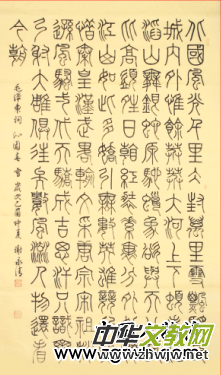 北國風光千里冰封萬里雪飄望長
城內外惟餘莽莽大河上下頓失滔
滔山舞銀蛇原馳蠟象欲與天公試比
高須晴日看紅裝素裹分外妖嬈
江山如此多嬌引無數英雄競折腰
惜秦皇漢武略輸文采唐宗宋祖稍
遜風騷一代天驕成吉思汗只識彎
弓射大雕俱往矣數風流人物還看
今朝
毛澤東詞 沁園春 雪 歲次乙酉仲夏
中华文教网
http://www.zhwjw.net